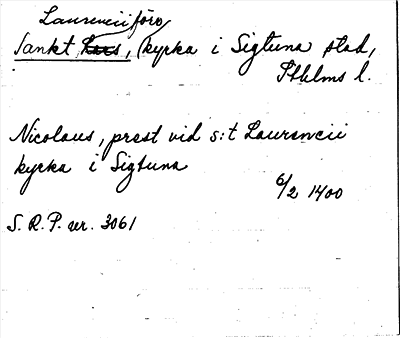 Laurencii före
Sankt, kyrka i Sigtuna stad,
Sthlms l.
Nicolaus, prest vid s:t Laurencii
kyrka i Sigtuna
6/2 1400
S. R. P. nr. 3061